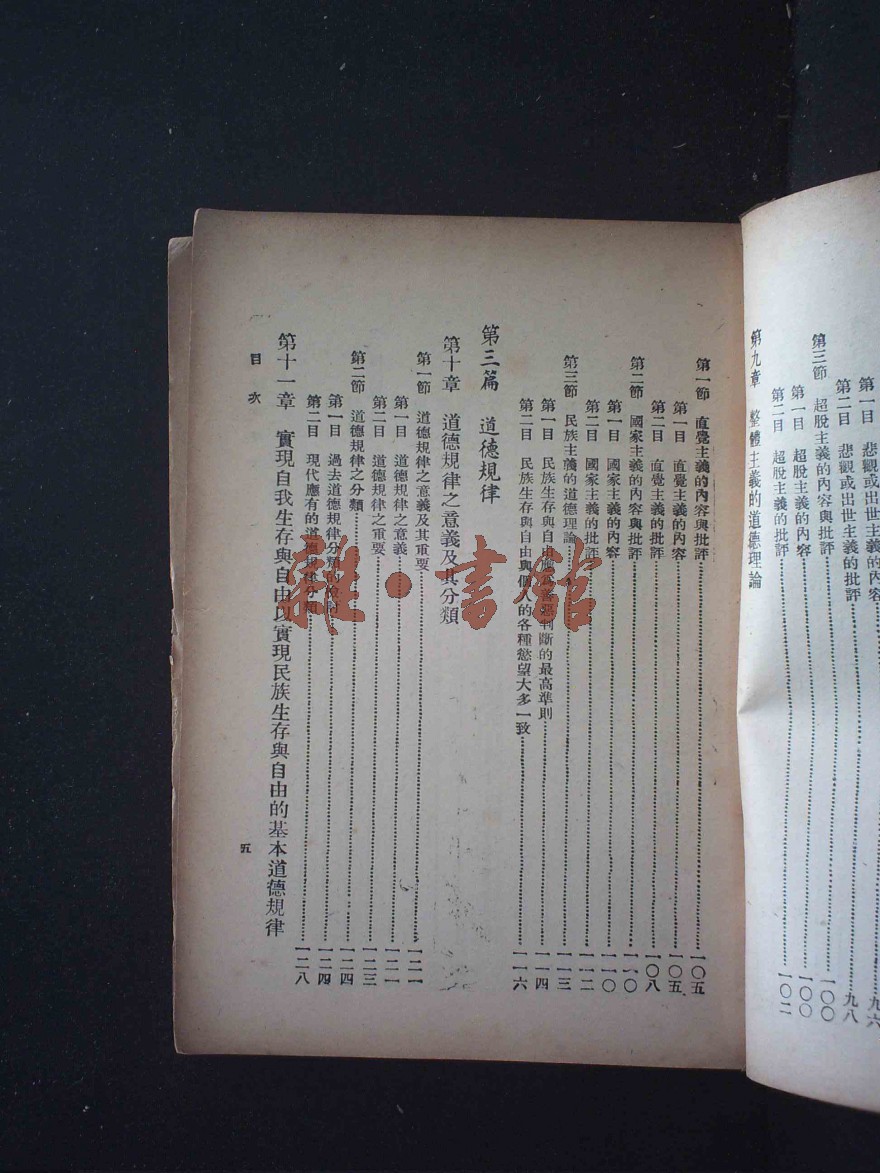 第一目 悲觀或出世主義的內容……九六
第二目 悲觀或出世主義的批評……九八
第三節 超脫主義的內容與批評……一〇〇
第一目 超脫主義的內容……一〇〇
第二目 超脫主義的批評……一〇二
第九章 整體主義的道德理論
第一節 直覺主義的內容與批評……一〇五
第一目 直覺主義的內容……一〇五
第二目 直覺主義的批評……一〇八
第二節 國家主義的內容與批評……一一〇
第一目 國家主義的內容……一一〇
第二目 國家主義的批評……一一二
第三節 民族主義的道德理論……一一三
第一目 民族生存與自由爲善惡判斷的最高準則……一一四
第二目 民族生存與自由與個人的各種慾望大多一致……一一六
第三篇 道德規律
第十章 道德規律之意義及其分類
第一節 道德規律之意義及其重要……一二一
第一目 道德規律之意義……一二一
第二目 道德規律之重要……一二三
第二節 道德規律之分類……一二四
第一目 過去道德規律分類的……一二四
第二目 現代應有的道德規律分類……一二八
第十一章 實現自我生存與自由以實現民族生存與自由的基本道德規律
目次
五
雜·書館